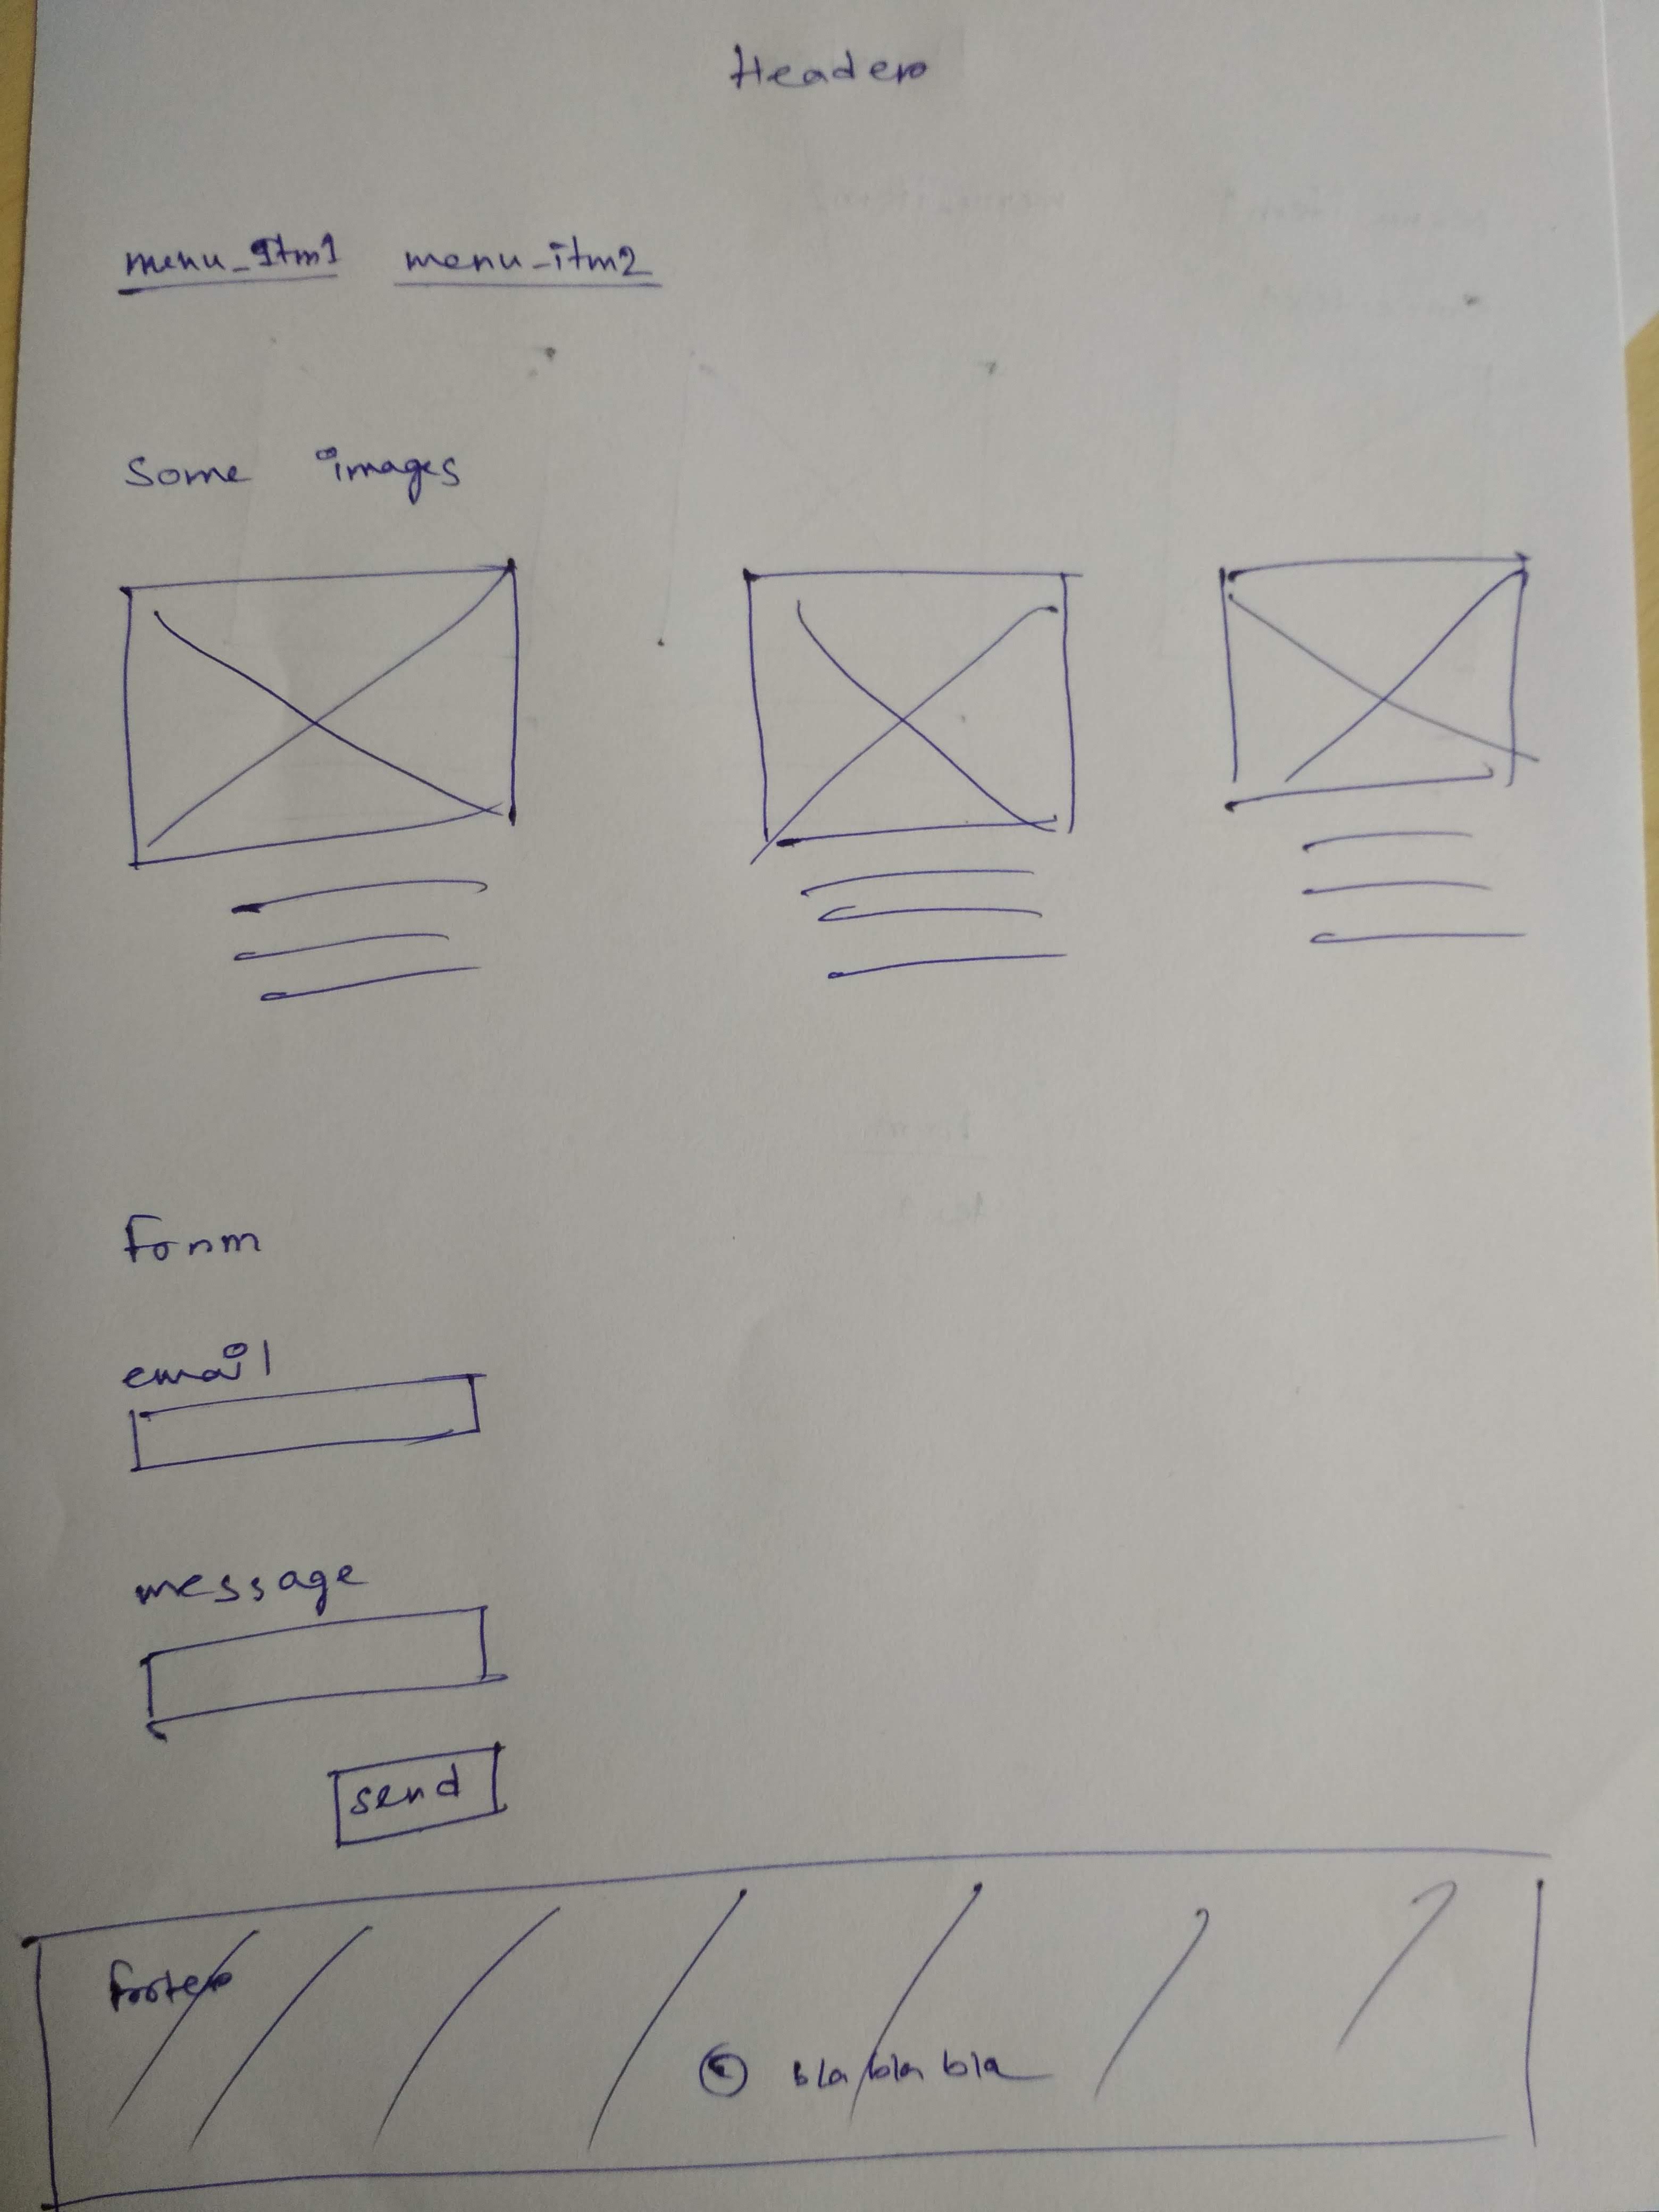 Header
menu_Itm1 menu-itm2
Some images
Form
email
message
send
footer
© bla bla bla